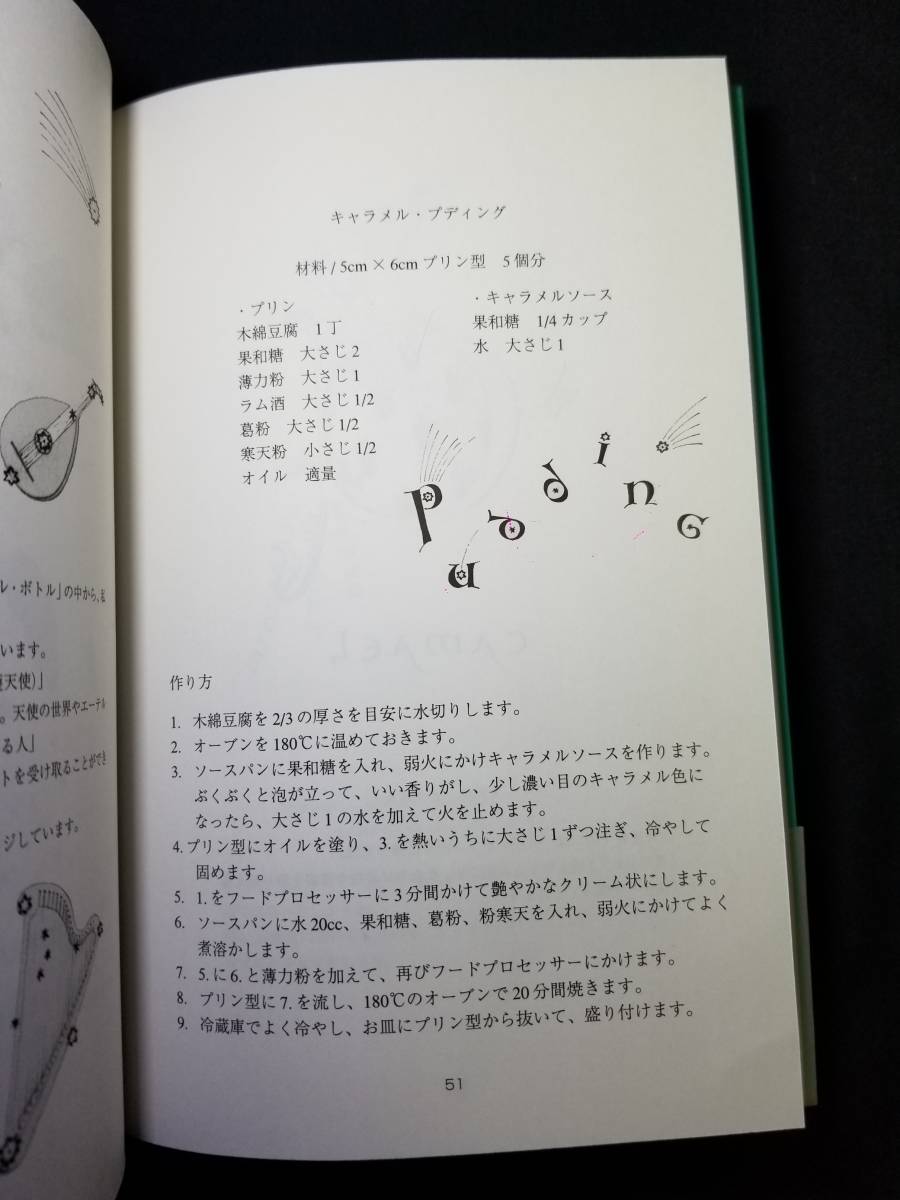 ル・ボトル」の中から、私
います。
天使)」
。天使の世界やエーテル
る人」
トを受け取ることができ
ジしています。
キャラメル・プディング
材料/5cm×6cmプリン型　5個分
・プリン
木綿豆腐　1丁
果和糖　大さじ2
薄力粉　大さじ1
ラム酒　大さじ1/2
葛粉　大さじ1/2
寒天粉　小さじ1/2
オイル　適量
・キャラメルソース
果和糖　1/4カップ
水　大さじ1
Pudding
作り方
1. 木綿豆腐を2/3の厚さを目安に水切りします。
2. オーブンを180℃に温めておきます。
3. ソースパンに果和糖を入れ、弱火にかけキャラメルソースを作ります。
ぶくぶくと泡が立って、いい香りがし、少し濃い目のキャラメル色に
なったら、大さじ1の水を加えて火を止めます。
4. プリン型にオイルを塗り、3.を熱いうちに大さじ1ずつ注ぎ、冷やして
固めます。
5. 1.をフードプロセッサーに3分間かけて艶やかなクリーム状にします。
6. ソースパンに水20cc、果和糖、葛粉、粉寒天を入れ、弱火にかけてよく
煮溶かします。
7. 5.に6.と薄力粉を加えて、再びフードプロセッサーにかけます。
8. プリン型に7.を流し、180℃のオーブンで20分間焼きます。
9. 冷蔵庫でよく冷やし、お皿にプリン型から抜いて、盛り付けます。
51